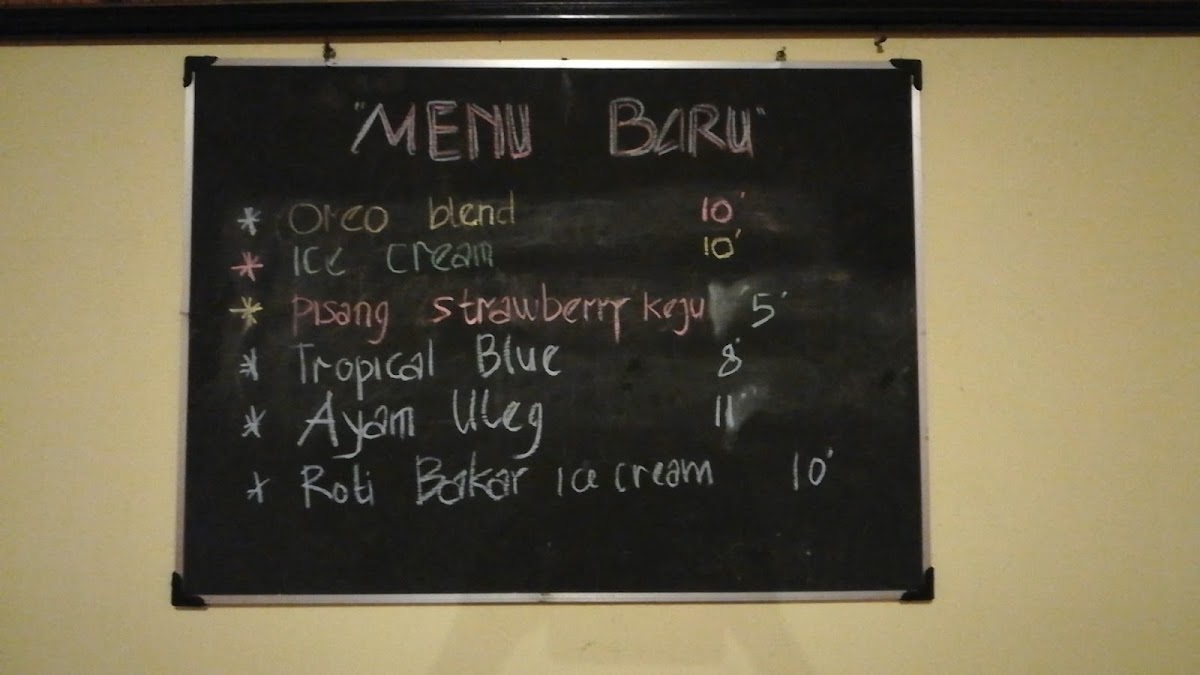 "MENU BARU"
* Oreo blend 10'
* Ice cream 10'
* Pisang strawberry keju 5'
* Tropical Blue 8'
* Ayam Uleg 11'
* Roti Bakar ice cream 10'